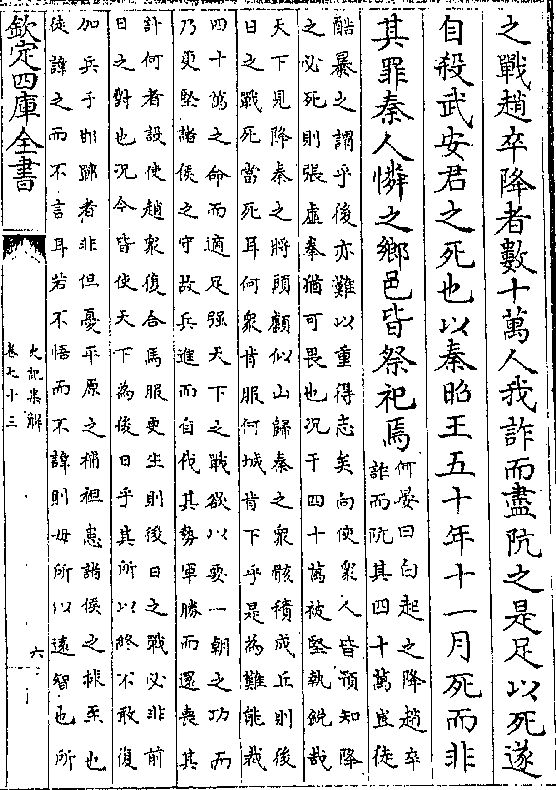 之戰趙卒降者數十萬人我詐而盡阬之是足以死遂
自殺武安君之死也以秦昭王五十年十一月死而非
其罪秦人憐之鄉邑皆祭祀焉
何晏曰白起之降趙卒
詐而阬其四十萬豈徒
酷暴之謂乎後亦難以重得志矣向使衆人皆預知降
之必死則張虛拳猶可畏也況于四十萬被堅執銳哉
天下見降秦之將頭顱似山歸秦之衆骸積成丘則後
日之戰死當死耳何衆肯服何城肯下乎是為難能裁
四十萬之命而適足强天下之戰欲以要一朝之功而
乃更堅諸侯之守故兵進而自伐其勢軍勝而還喪其
計何者設使趙衆復合馬服更生則後日之戰必非前
日之對也況今皆使天下為後日乎其所以終不敢復
加兵于邯鄲者非但憂平原之補袒患諸侯之捄至也
徒諱之而不言耳若不悟而不諱則毋所以遠智也所
欽定四庫全書
史記集解
卷七十三
六